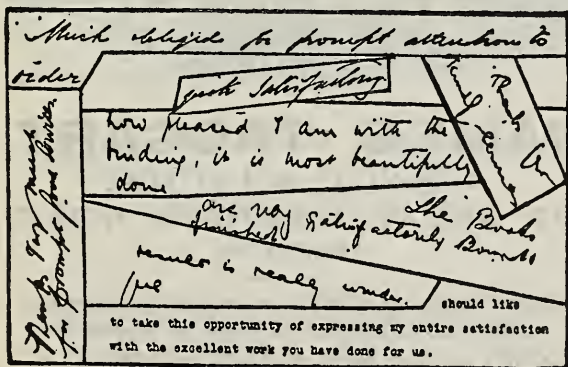 Much obliged for prompt attention to
order
quite satisfactory
how pleased I am with the
binding, it is most beautifully
done
Thanks
The Books
are very satisfactorily Bound
finished
result is really wonder.
ful
Thanks very much
for prompt fine service.
should like
to take this opportunity of expressing my entire satisfaction
with the excellent work you have done for us.